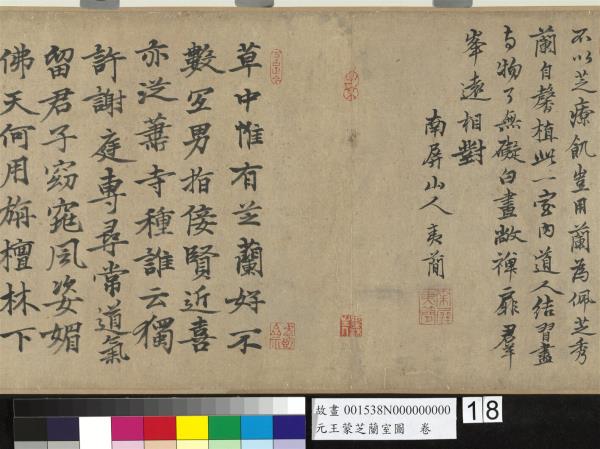 不以芝療飢豈用蘭為佩芝秀
蘭自馨植此一室內道人結習盡
與物了無礙白晝敞禪扉群
峯遠相對
南屏山人夷簡
草中惟有芝蘭好不
數宜男指佞賢近喜
亦從蕭寺種誰云獨
許謝庭專尋常道氣
留君子窈窕風姿媚
佛天何用旃檀林下
故畫 001538N000000000
元王蒙芝蘭室圖 卷
18